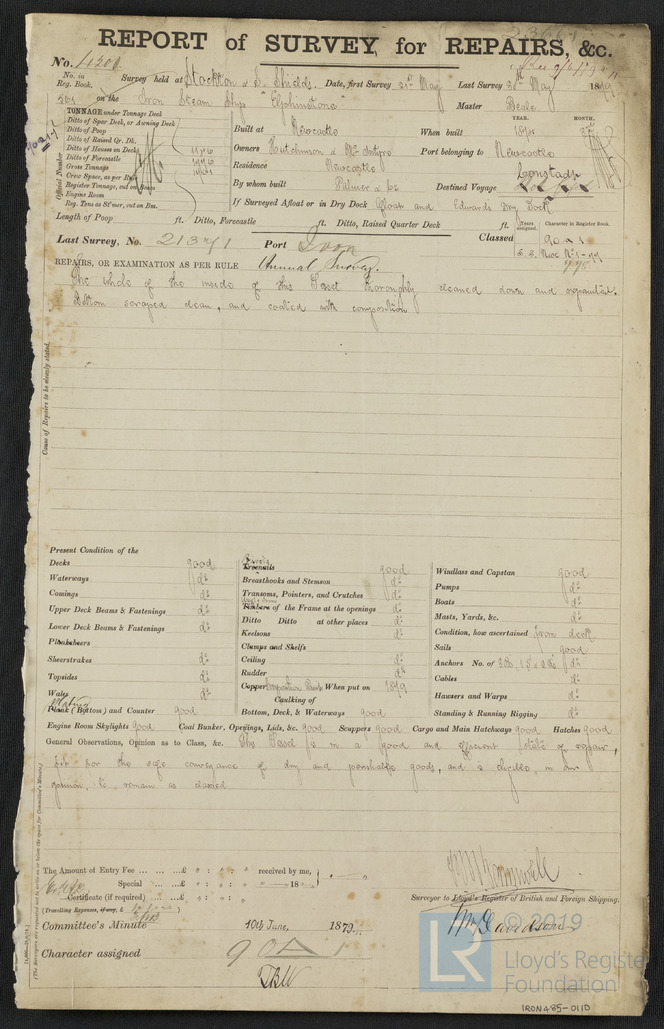 REPORT of SURVEY for REPAIRS, &c.
No. 11200
No. in Reg. Book. Survey held at Stockton & S. Shields Date, first Survey 21st May Last Survey 30th May 1879
501 on the Iron Steam Ship "Elphinstone" Master Beale
TONNAGE under Tonnage Deck
Ditto of Spar Deck, or Awning Deck
Ditto of Poop
Ditto of Raised Qr. Dk.
Ditto of Houses on Deck
Ditto of Forecastle
Gross Tonnage
Crew Space, as per Rule
Register Tonnage, cut on Beam
Engine Room
Reg. Tons as St'mer, cut on Bm.
Official Number
YEAR. MONTH.
Built at Newcastle When built
Owners Hutchinson & Port belonging to Newcastle
Residence Newcastle
By whom built Palmer & Co Destined Voyage Cronstadt
If Surveyed Afloat or in Dry Dock Afloat and Edwards Dry Dock
Length of Poop ft. Ditto, Forecastle ft. Ditto, Raised Quarter Deck ft.
Years assigned. Character in Register Book.
Last Survey, No. Port Iron Classed 90 A 1
REPAIRS, OR EXAMINATION AS PER RULE Annual Survey.
The whole of the inside of this Vessel thoroughly cleaned down and repainted.
Bottom scraped clean, and coated with composition
Cause of Repairs to be clearly stated.
Present Condition of the
Decks good
Waterways do
Comings do
Upper Deck Beams & Fastenings do
Lower Deck Beams & Fastenings do
Planksheers
Sheerstrakes do
Topsides do
Wales do
Plating
Plank (Bottom) and Counter good
Rivets
Treenails good
Breasthooks and Stemson do
Transoms, Pointers, and Crutches do
Timbers of the Frame at the openings do
Ditto Ditto at other places do
Keelsons do
Clamps and Shelfs
Ceiling do
Rudder do
Copper Composition When put on 1879
Caulking of
Bottom, Deck, & Waterways good
Windlass and Capstan good
Pumps do
Boats do
Masts, Yards, &c. do
Condition, how ascertained from deck
Sails good
Anchors No. of 3B, 1S & 2K do
Cables do
Hawsers and Warps do
Standing & Running Rigging do
Engine Room Skylights good Coal Bunker, Openings, Lids, &c. good Scuppers good Cargo and Main Hatchways good Hatches good
General Observations, Opinion as to Class, &c. This Vessel is in a good and efficient state of repair,
fit for the safe conveyance of dry and perishable goods, and is eligible, in our
opinion, to remain as classed
The Amount of Entry Fee ... ... ...£ : : received by me,
Special ... ...£ : : 18
Certificate (if required) ...£ : :
(Travelling Expenses, if any, £ )
Surveyor to Lloyd's Register of British and Foreign Shipping.
Wm Davidson
Committee's Minute 10th June, 1879.
Character assigned 90 A 1
© 2019
LR
Lloyd's Register
Foundation
IRON485-0110